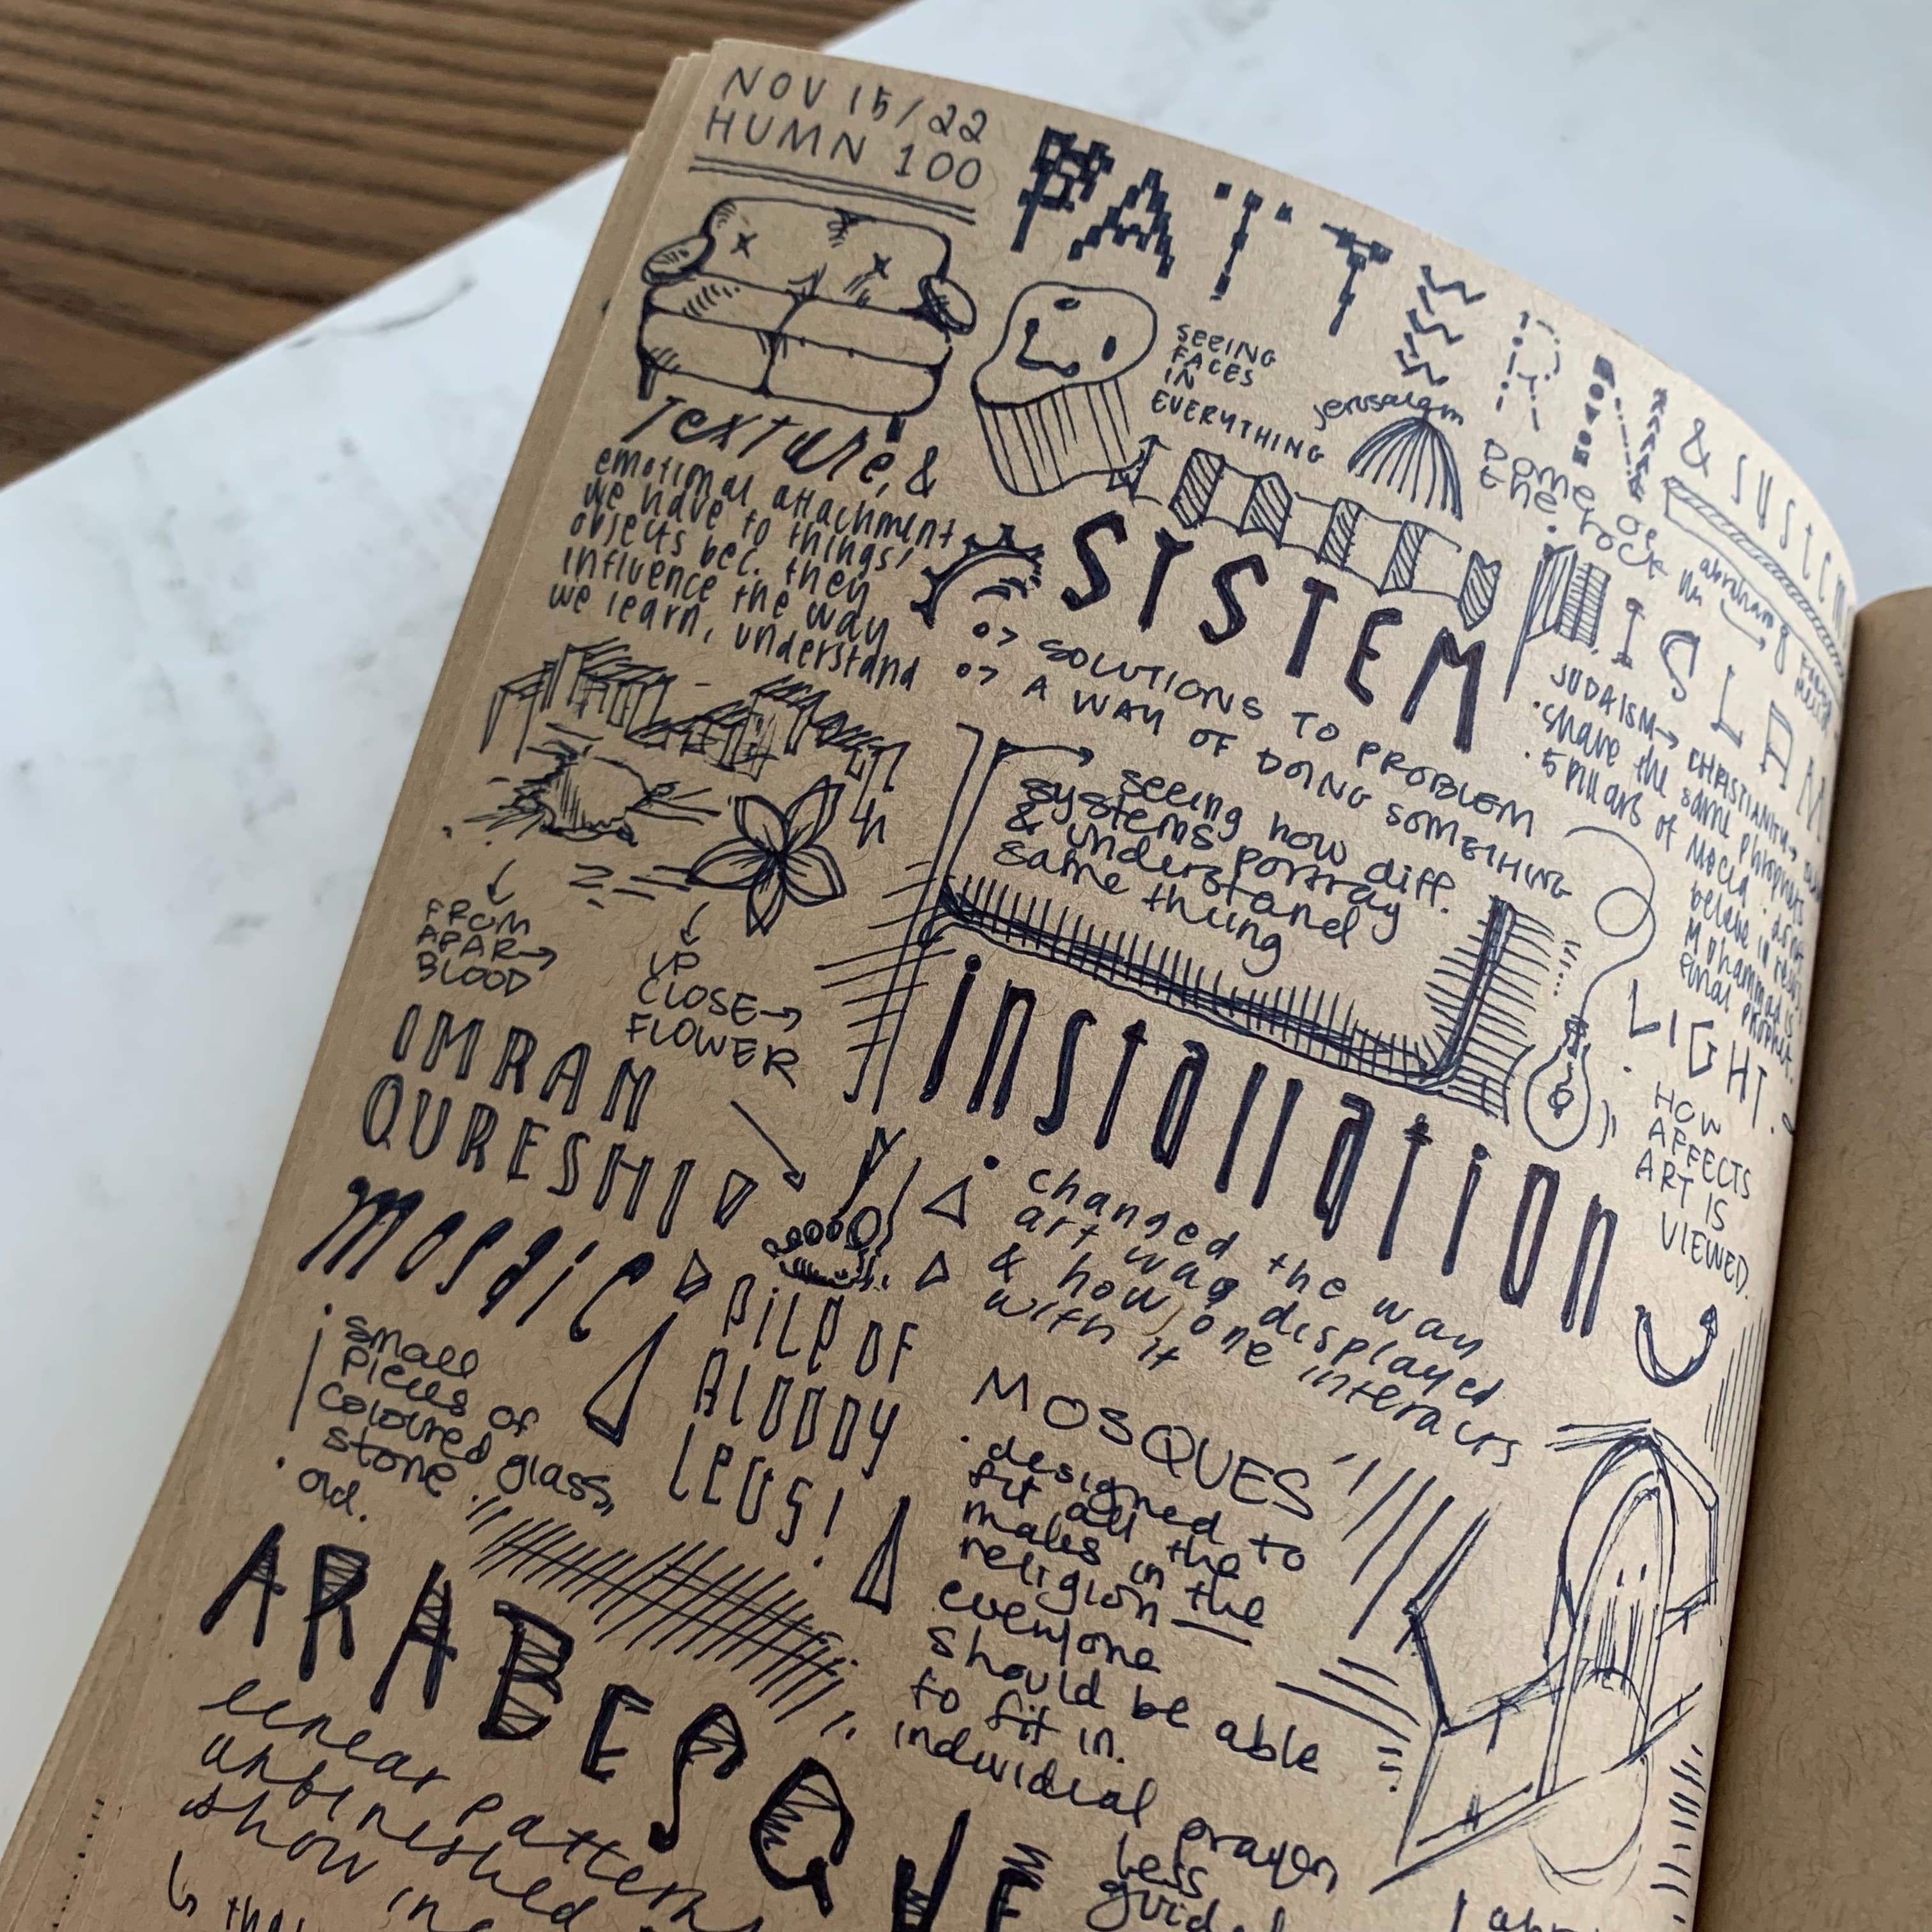 NOV 15/22
HUMN 100
PATTERN & system
SEEING
FACES
IN
EVERYTHING
Jerusalem
Dome of
the rock
abraham
Texture, &
emotional attachment
we have to things/
objects bec. they
influence the way
we learn, understand
SYSTEM
SOLUTIONS TO PROBLEM
A WAY OF DOING SOMETHING
seeing how diff.
systems portray
& understand
same thing
ISLAM
JUDAISM → CHRISTIANITY →
• share the same
• 5 pillars of
believe in
Mohammad is
final prophet.
FROM
AFAR →
BLOOD
UP
CLOSE →
FLOWER
IMRAN
QURESHI
PILE OF
BLOODY
LEGS!
mosaic
• small
pieces of
coloured glass,
stone
• old.
installation
• changed the way
art was displayed
& how one interacts
with it
LIGHT
• HOW
AFFECTS
ART IS
VIEWED
MOSQUES
• designed to
fit all the
males in the
religion — the
everyone
should be able
to fit in.
individial prayer,
less
ARABESQUE
linear pattern
unfinished
show